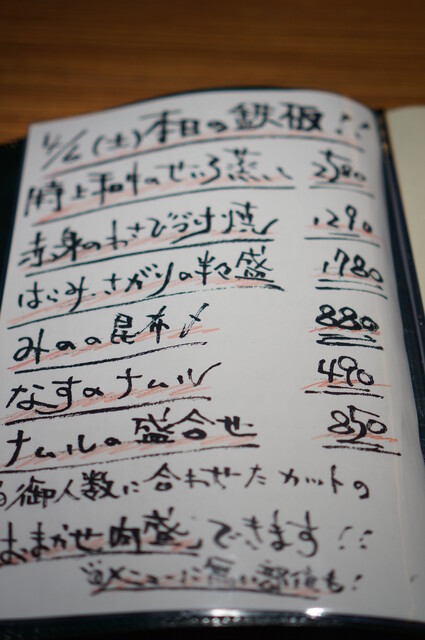 4/6(土)本日の鉄板!!
特上和牛のせいろ蒸し 2580
赤身のわさびづけ焼 1290
はらみ・さがりの半々盛 1780
みのの昆布〆 880
なすのナムル 490
ナムルの盛合せ 850
御人数に合わせたカットの
おまかせ肉盛できます!!
メニューに無い部位も!